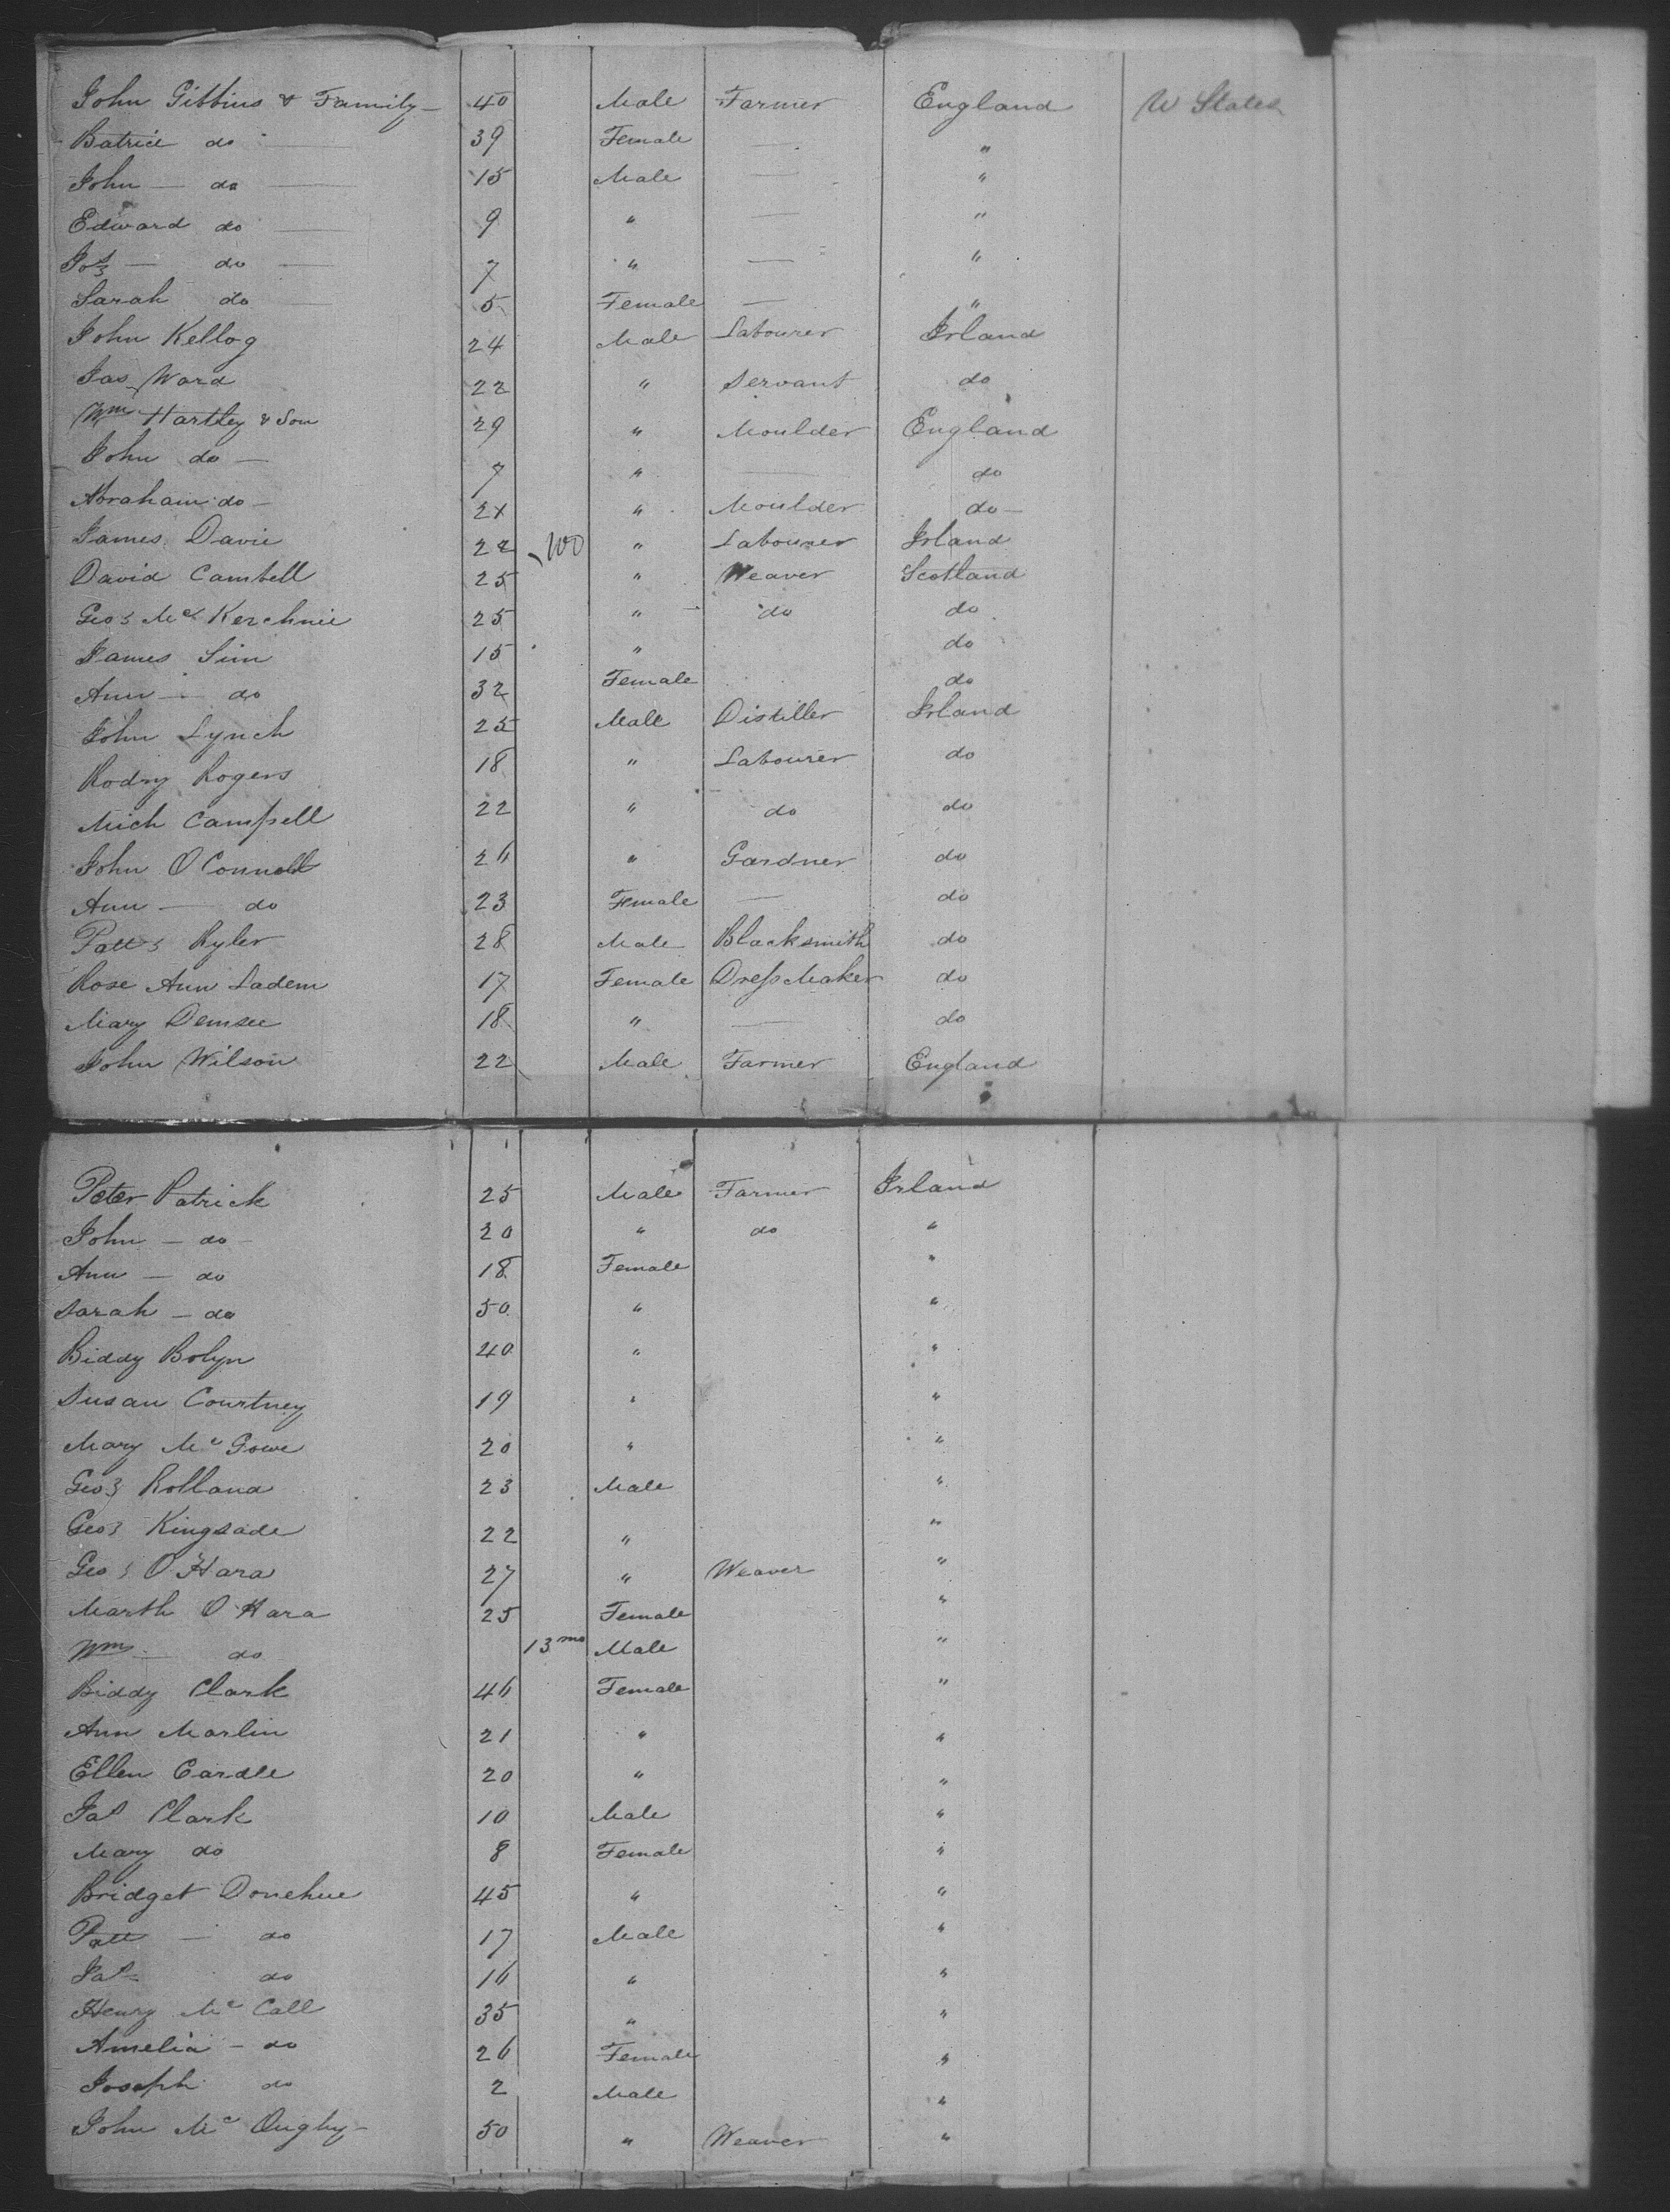 John Gibbins & Family 40 Male Farmer England U States
Batrice do 39 Female — "
John — do 15 Male — "
Edward do 9 " — "
Jos — do 7 " — "
Sarah do 5 Female — "
John Kellog 24 Male Labourer Irland
Jas Ward 22 " Servant do
Wm Hartley & Son 29 " Moulder England
John do — 7 " — do
Abraham do — 21 " Moulder do —
James Davie 22 100 " Labourer Irland
David Cambell 25 " Weaver Scotland
Geo Mc Kerchnie 25 " do do
James Sim 15 " do
Ann — do 32 Female do
John Lynch 25 Male Distiller Irland
Rodny Rogers 18 " Labourer do
Mich Campell 22 " do do
John O Connell 26 " Gardner do
Ann — do 23 Female — do
Patt Ryler 28 Male Blacksmith do
Rose Ann Ladem 17 Female Dress Maker do
Mary Demsee 18 " — do
John Wilson 22 Male Farmer England
Peter Patrick 25 Male Farmer Irland
John — do 20 " do "
Ann — do 18 Female "
Sarah — do 50 " "
Biddy Bolyn 40 " "
Susan Courtney 19 " "
Mary Mc Gowe 20 " "
Geo Rolland 23 Male "
Geo Kingsade 22 " "
Geo O Hara 27 " Weaver "
Marth O Hara 25 Female "
Wm — do 13 mo Male "
Biddy Clark 46 Female "
Ann Marlin 21 " "
Ellen Cardle 20 " "
Jas Clark 10 Male "
Mary do 8 Female "
Bridget Donehue 45 " "
Patt — do 17 Male "
Jas do 16 " "
Henry Mc Call 35 " "
Amelia — do 26 Female "
Joseph do 2 Male "
John Mc Oughy 50 " Weaver "